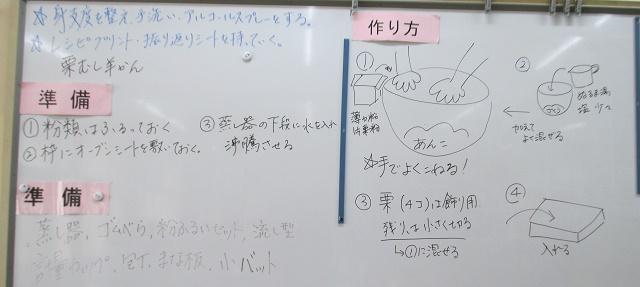 ☆ 身支度を整え、手洗い・アルコールスプレーをする。
☆ レシピプリント・振り返りシートを持っていく。
栗むし羊かん
準備
① 粉類はふるっておく
② 枠にオーブンシートを敷いておく。
③ 蒸し器の下段に水を入れ
沸騰させる
準備
蒸し器、ゴムべら、粉ふるいセット、流し型
計量カップ、包丁、まな板、小バット
作り方
①
薄力粉
片栗粉
あんこ
☆手でよくこねる！
②
ぬるま湯
塩 少々
加えて
よく混ぜる
③ 栗(4コ)は飾り用
残りは小さく切る
↳①に混ぜる
④
入れる